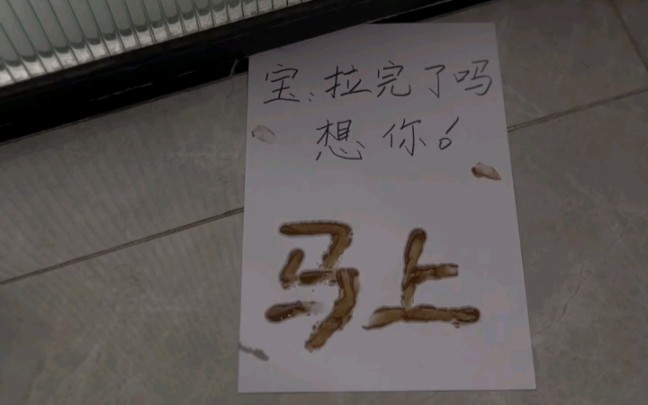 宝:拉完了吗
想你!
马上